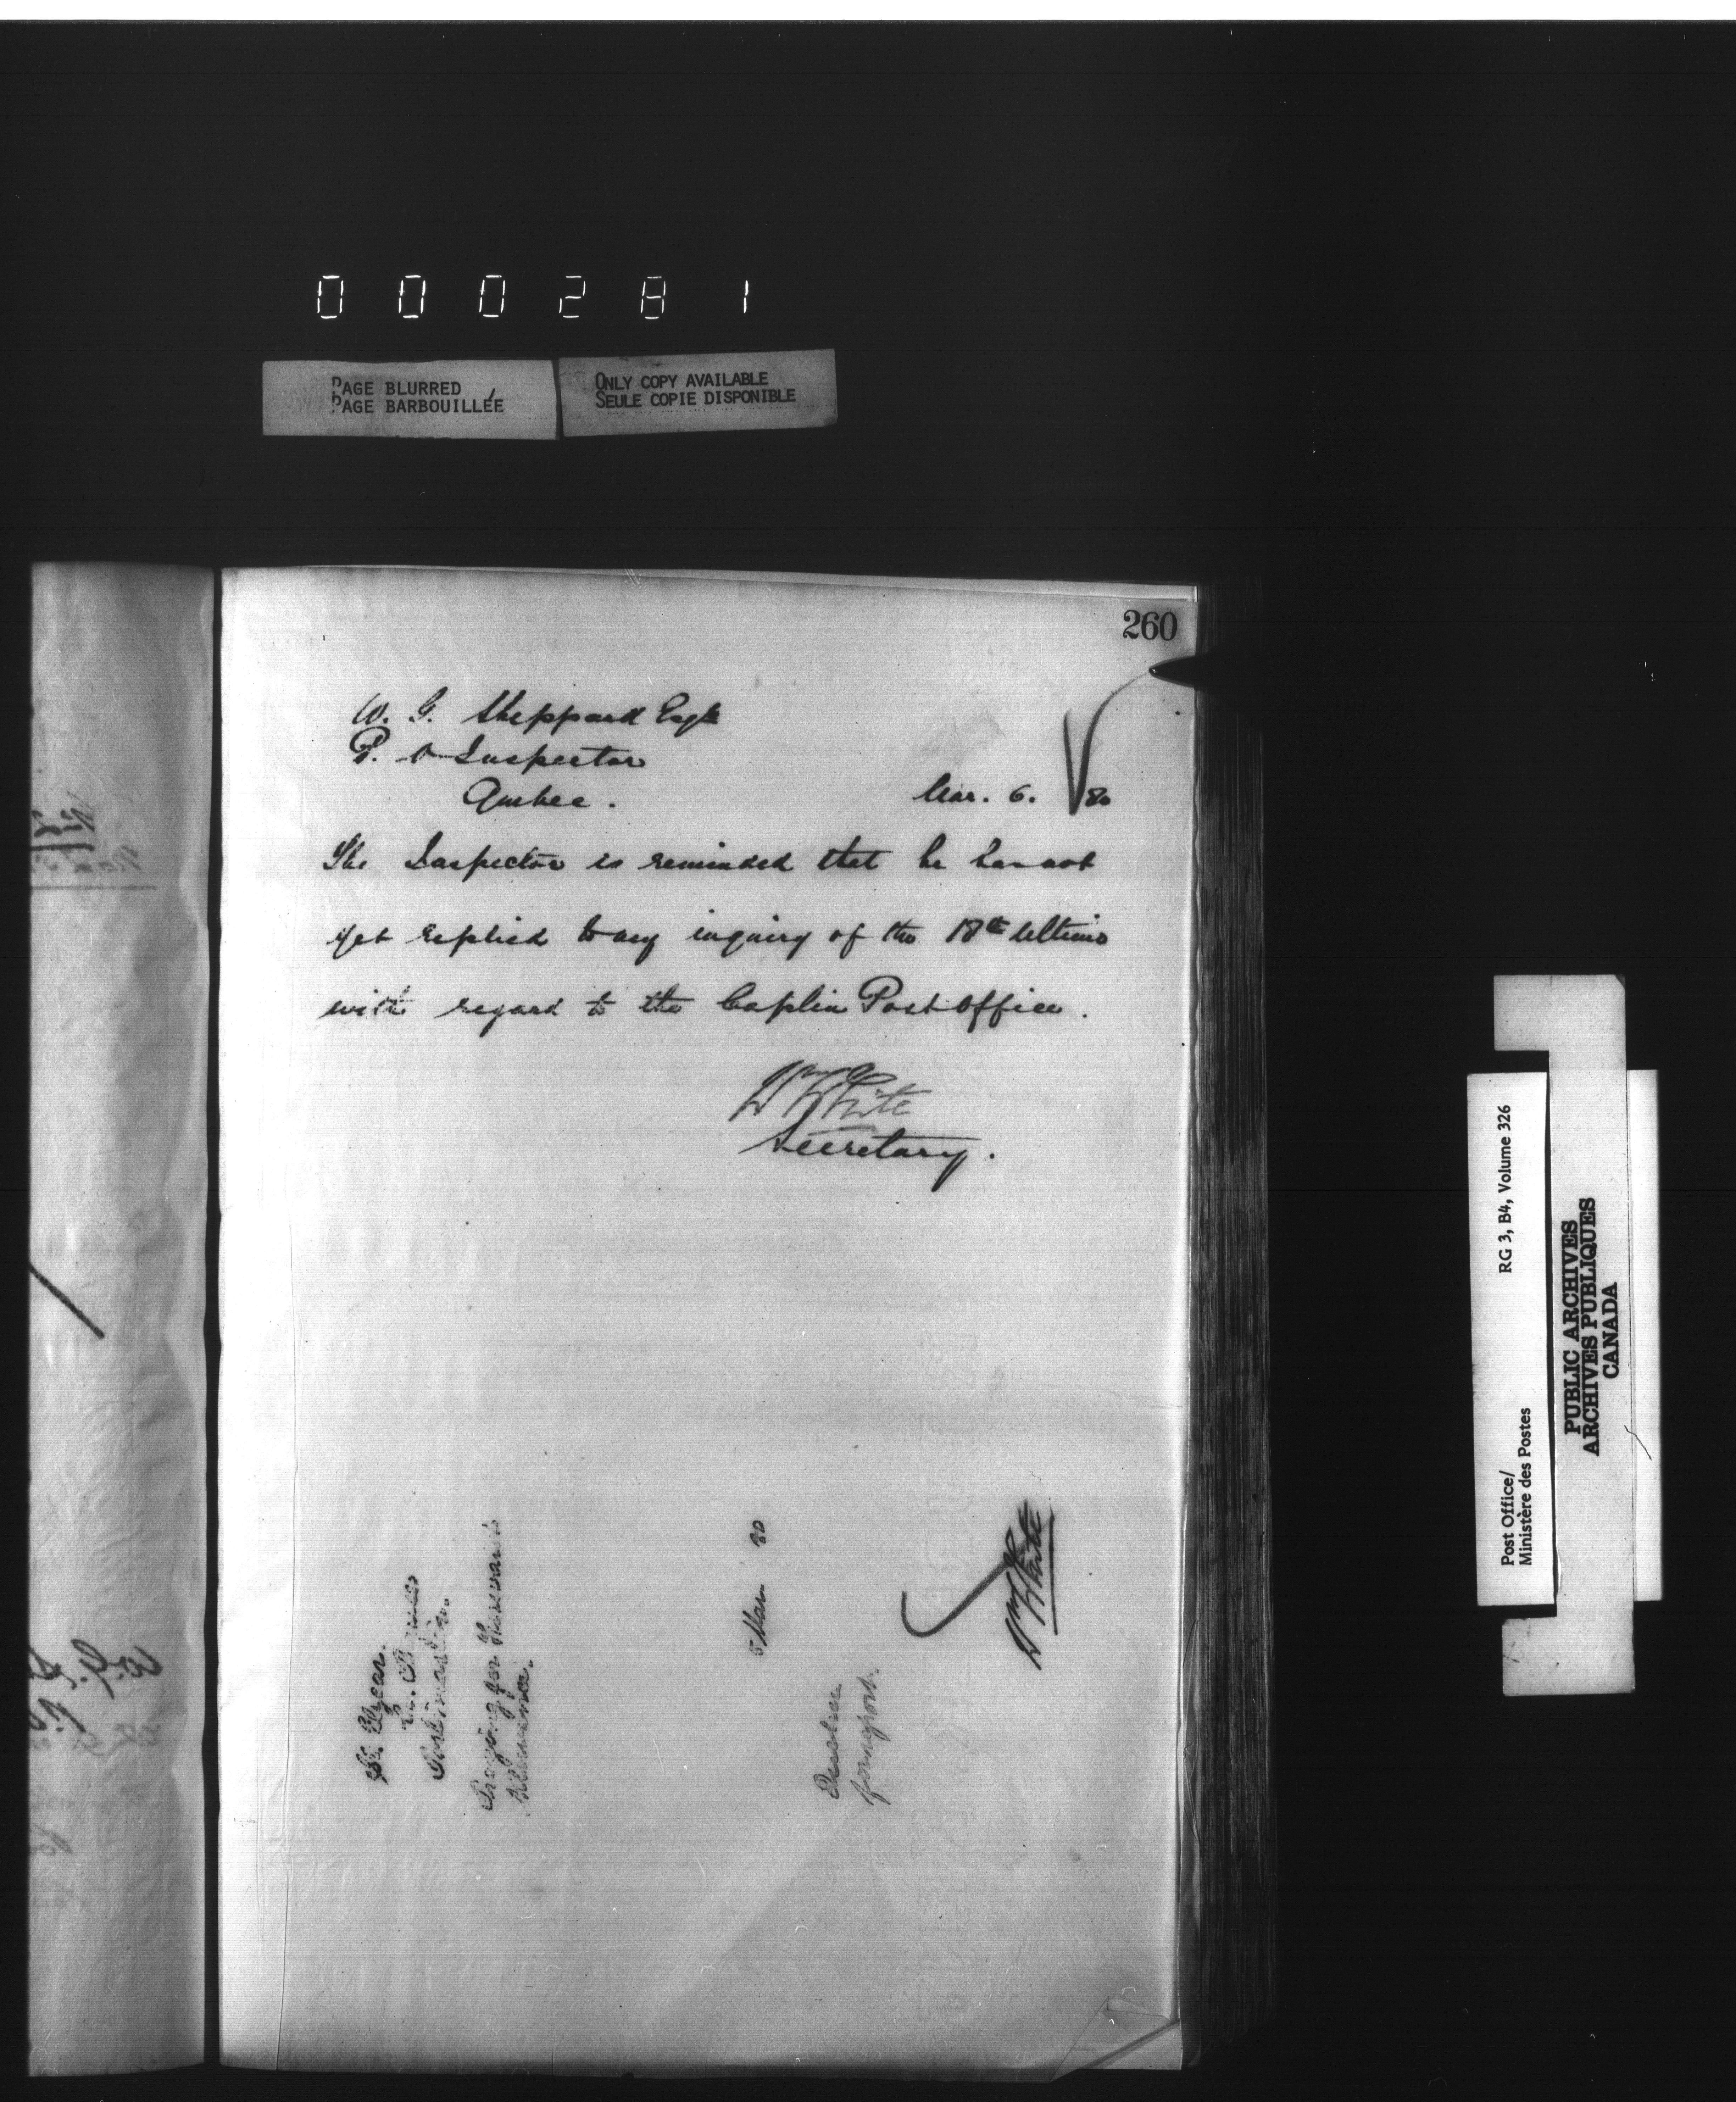 000281
PAGE BLURRED
PAGE BARBOUILLÉE
ONLY COPY AVAILABLE
SEULE COPIE DISPONIBLE
260
W. G. Sheppard Esqr
P. O Inspector
Quebec.
Mar. 6. 80
The Inspector is reminded that he has not
yet replied to my inquiry of the 18th Ultimo
with regard to the Caplin Post Office.
Wm White
Secretary.
Postmaster.
Praying for
allowance.
5 Mar 80
Quebec
for report.
Wm White
Post Office/
Ministère des Postes
RG 3, B4, Volume 326
PUBLIC ARCHIVES
ARCHIVES PUBLIQUES
CANADA